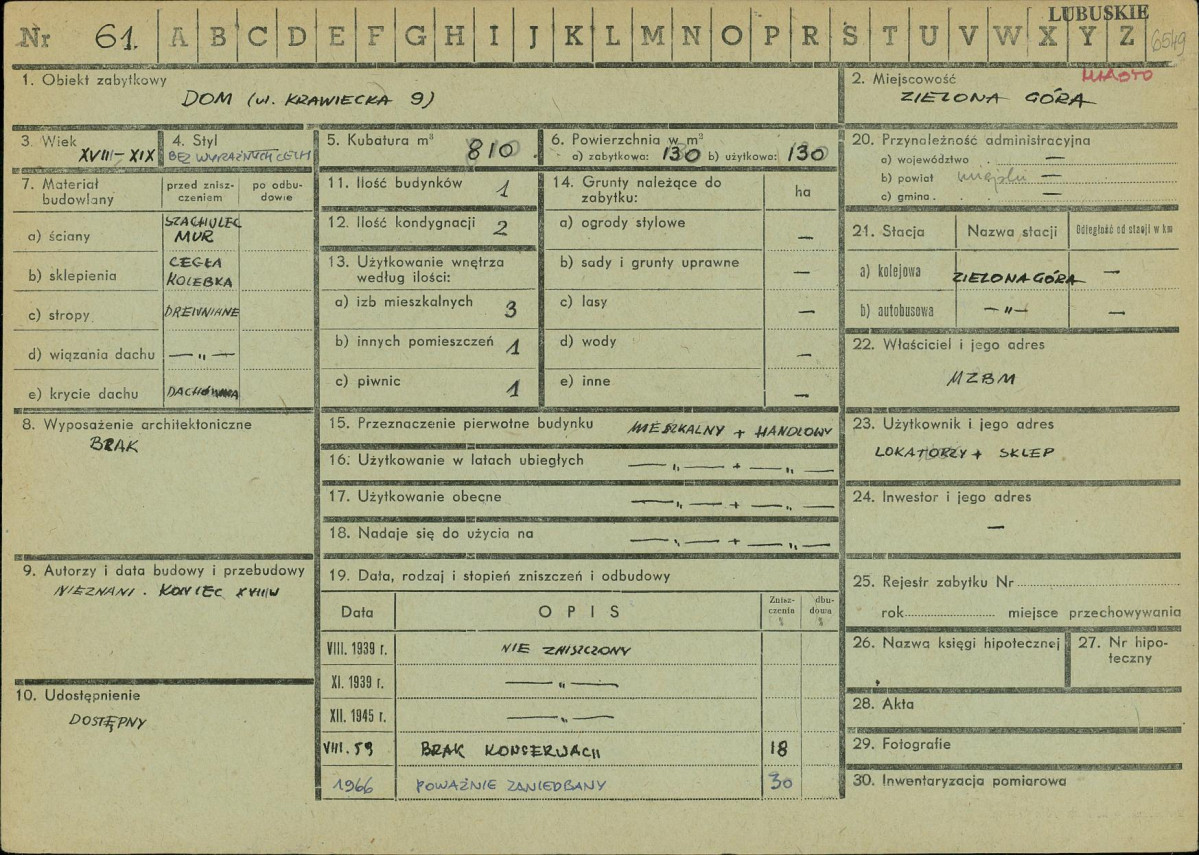 LUBUSKIE
Nr 61. A B C D E F G H I J K L M N O P R S T U V W X Y Z 6549
1. Obiekt zabytkowy
DOM (ul. KRAWIECKA 9)
2. Miejscowość
MIASTO
ZIELONA GÓRA
3. Wiek
XVIII-XIX
4. Styl
BEZ WYRAŹNYCH CECH
5. Kubatura m³ 810
6. Powierzchnia w m²
a) zabytkowa: 130 b) użytkowa: 130
7. Materiał budowlany
przed znisz-
czeniem
po odbu-
dowie
a) ściany SZACHULEC
MUR
b) sklepienia CEGŁA
KOLEBKA
c) stropy DREWNIANE
d) wiązania dachu — „ —
e) krycie dachu DACHÓWKA
8. Wyposażenie architektoniczne
BRAK
9. Autorzy i data budowy i przebudowy
NIEZNANI. KONIEC XVIIIW
10. Udostępnienie
DOSTĘPNY
11. Ilość budynków 1
12. Ilość kondygnacji 2
13. Użytkowanie wnętrza
według ilości:
a) izb mieszkalnych 3
b) innych pomieszczeń 1
c) piwnic 1
14. Grunty należące do
zabytku:
ha
a) ogrody stylowe —
b) sady i grunty uprawne —
c) lasy —
d) wody —
e) inne —
15. Przeznaczenie pierwotne budynku MIESZKALNY + HANDLOWY
16. Użytkowanie w latach ubiegłych — „ — + — „ —
17. Użytkowanie obecne — „ — + — „ —
18. Nadaje się do użycia na — „ — + — „ —
19. Data, rodzaj i stopień zniszczeń i odbudowy
Data
OPIS
Znisz-
czenia
%
dbu-
dowa
%
VIII. 1939 r. NIE ZNISZCZONY
XI. 1939 r. — „ —
XII. 1945 r. — „ —
VIII. 59 BRAK KONSERWACJI 18
1966 POWAŻNIE ZANIEDBANY 30
20. Przynależność administracyjna
a) województwo . —
b) powiat miejski —
c) gmina . . —
21. Stacja
Nazwa stacji
Odległość od stacji w km
a) kolejowa ZIELONA GÓRA —
b) autobusowa — „ — —
22. Właściciel i jego adres
MZBM
23. Użytkownik i jego adres
LOKATORZY + SKLEP
24. Inwestor i jego adres
—
25. Rejestr zabytku Nr
rok miejsce przechowywania
26. Nazwa księgi hipotecznej
27. Nr hipo-
teczny
28. Akta
29. Fotografie
30. Inwentaryzacja pomiarowa